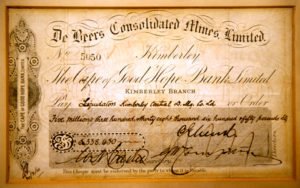 De Beers Consolidated Mines, Limited.
No. 5050 Kimberley
The Cape of Good Hope Bank Limited
KIMBERLEY BRANCH
Pay Liquidators Kimberley Central D. Mg Co Ld or Order
Five millions three hundred and thirty eight thousand six hundred and fifty pounds
£5,338,650
This Cheque must be endorsed by the party to whom it is payable.